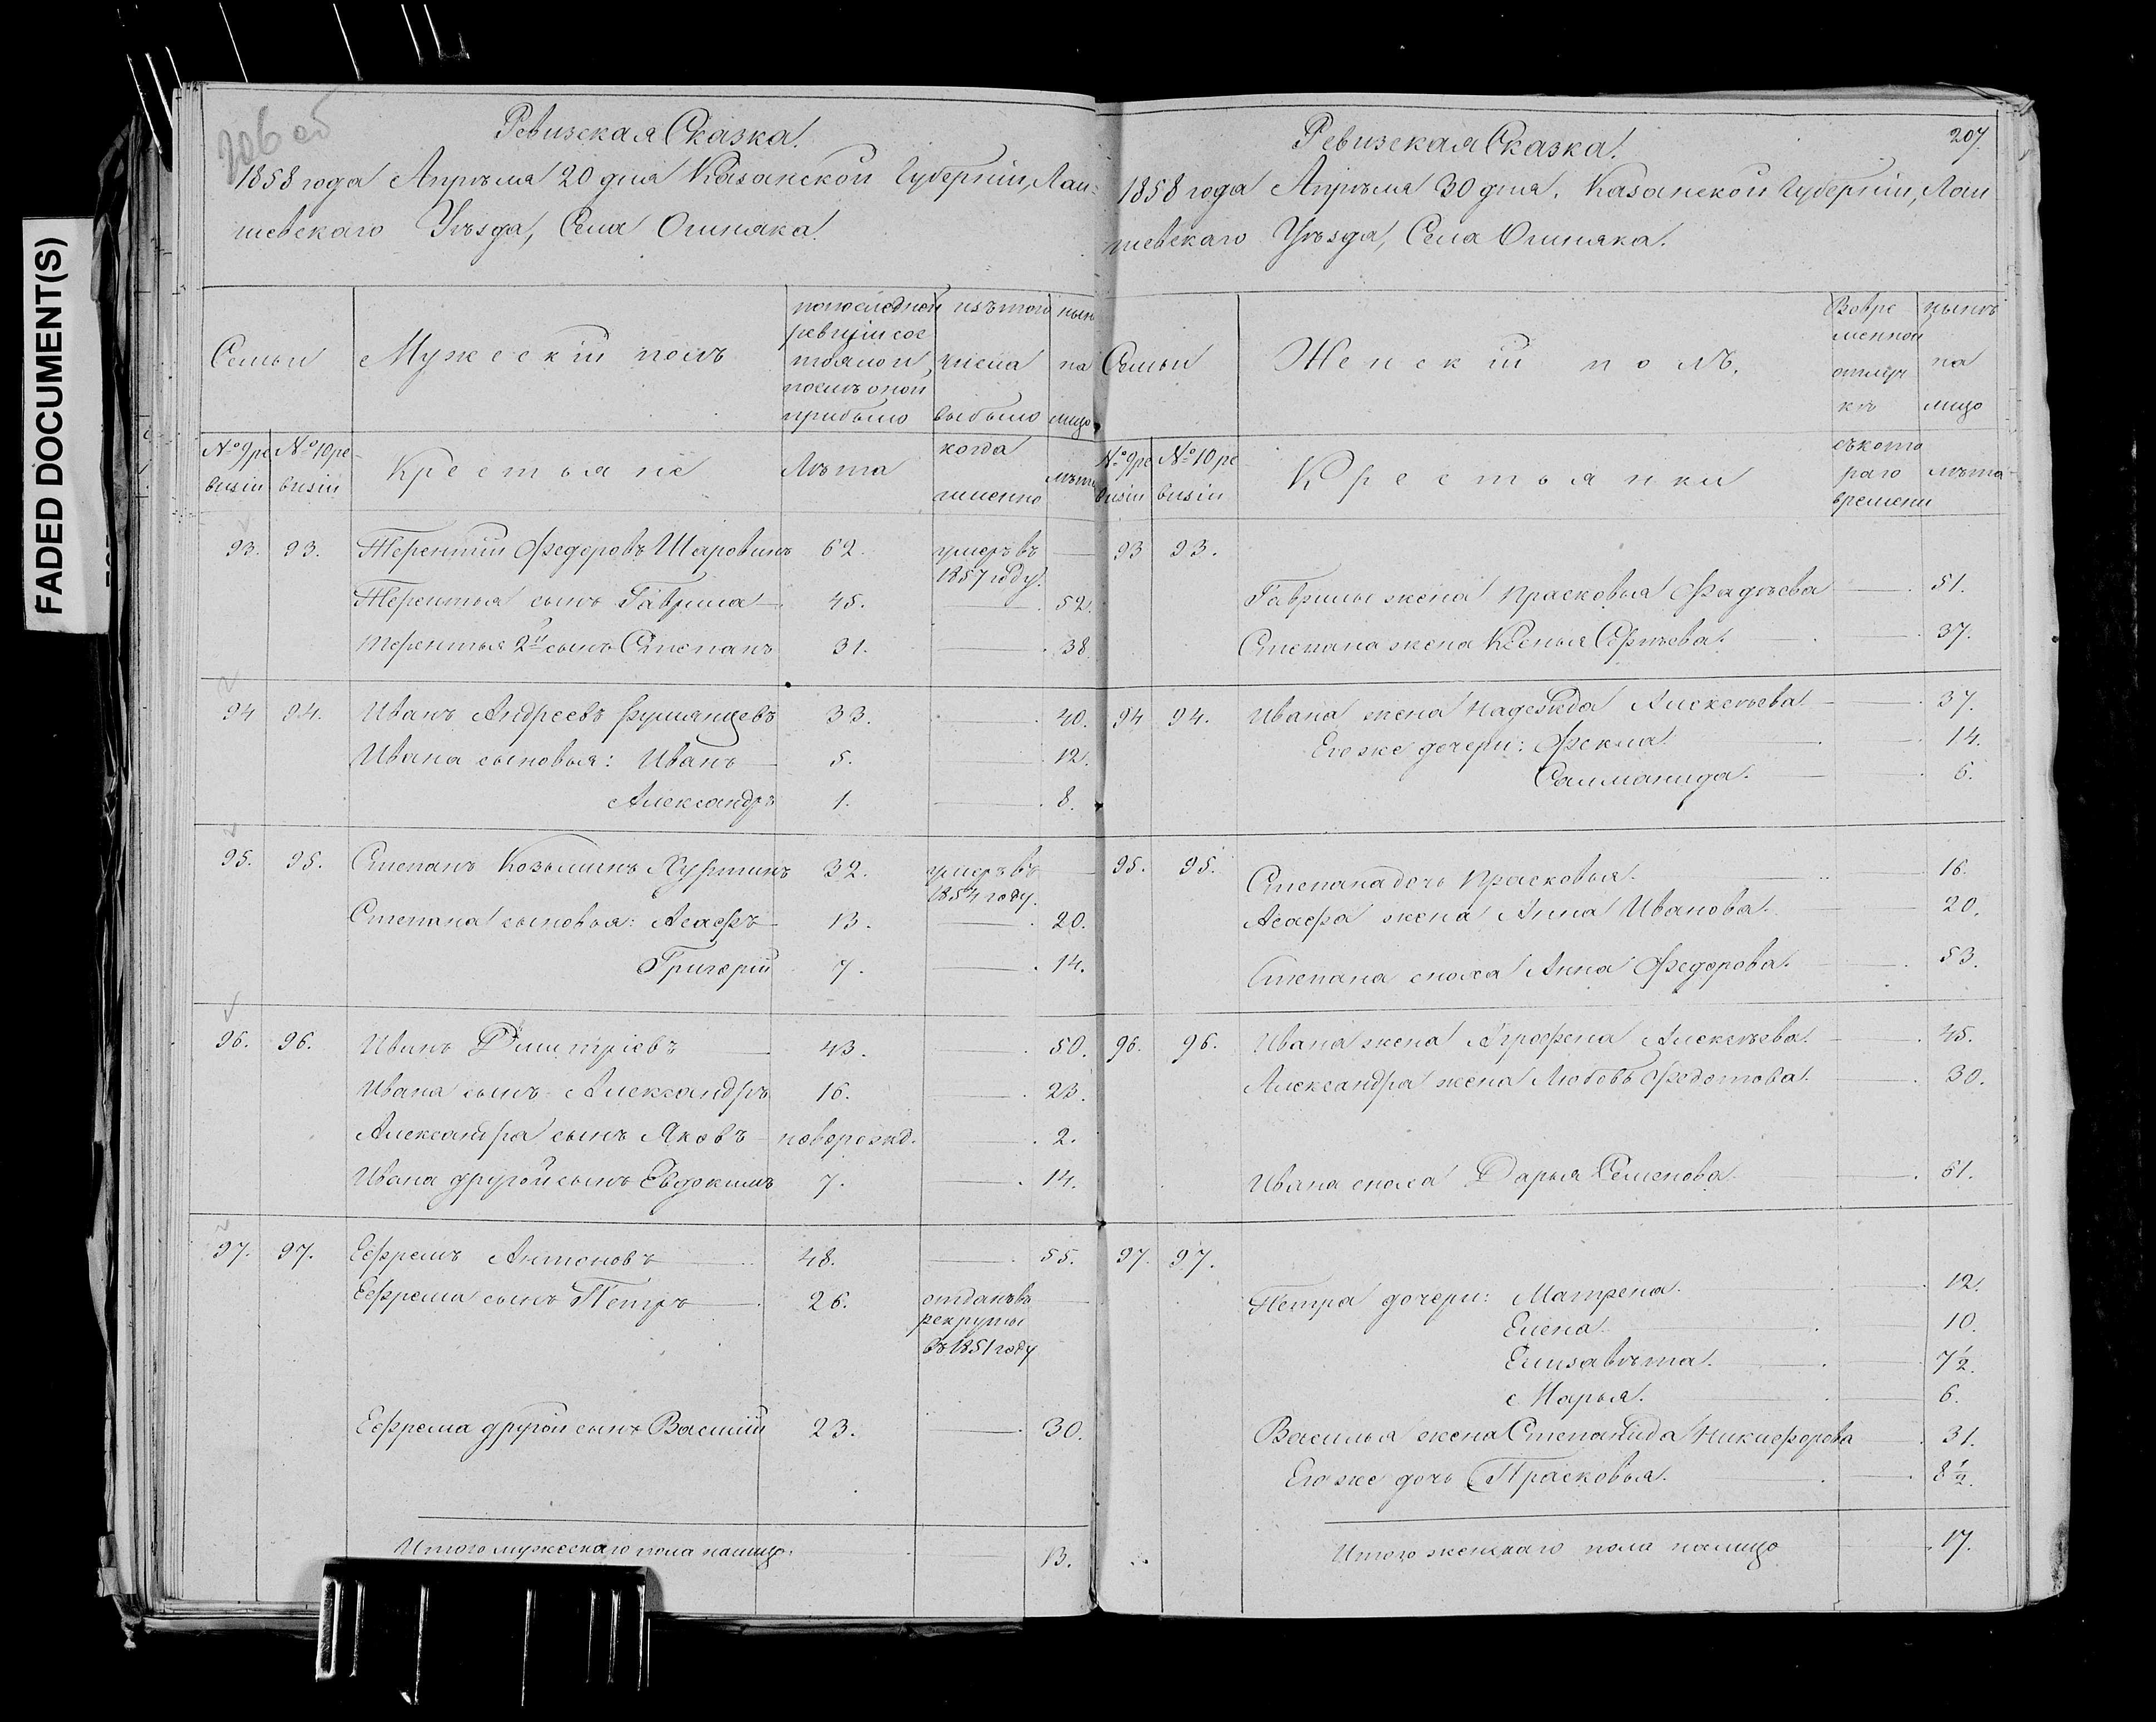 FADED DOCUMENT(S)
206 об
Ревизская Сказка.
1858 года Апрѣля 20 дня Казанской Губерніи, Лаи-
шевскаго Уѣзда, Села Ошняка.
Семьи
Мужескій полъ
по последней
ревизіи сос
тояло и
послѣ оной
прибыло
изъ того
числа
выбыло
нын
на
лицо
№ 9 ре
визіи
№ 10 ре-
визіи
Крестьяне
Лѣта
когда
именно
лѣта
93. 93. Терентій Федоровъ Шаровинъ 62. умеръ въ 1857 году. —
Терентья сынъ Гаврила — 45. — 52.
Терентья 2й сынъ Степанъ 31. — 38
94 94. Иванъ Андреевъ Румянцевъ 33. — 40.
Ивана сыновья: Иванъ — 5. — 12.
Александръ 1. — 8.
95. 95. Степанъ Козьминъ Куртинъ 32. умеръ въ 1854 году. —
Степана сыновья: Асафъ — 13. — 20.
Григорій 7. — 14.
96. 96. Иванъ Димитріевъ — 43. — 50.
Ивана сынъ Александръ 16. — 23.
Александра сынъ Яковъ — новорожд. — 2.
Ивана другой сынъ Евдокимъ 7. — 14.
97. 97. Ефремъ Антоновъ — 48. — 55.
Ефрема сынъ Петръ — 26. отданъ въ
рекруты
въ 1851 году —
Ефрема другой сынъ Василій 23. — 30.
Итого мужескаго пола налицо. — 13.
207.
Ревизская Сказка.
1858 года Апрѣля 30 дня. Казанской Губерніи, Лаи
шевскаго Уѣзда, Села Ошняка.
Семьи
Женскій полъ.
Во вре
менной
отлуч
кѣ
нынѣ
на
лицо
№ 9 ре
визіи
№ 10 ре
визіи
Крестьянки
съ кото
раго
времени
лѣта
93 93.
Гаврилы жена Прасковья Фадѣева — 51.
Степана жена Ксенья Сергѣева. — 37.
94 94. Ивана жена Надежда Алексѣева — 37.
Его же дочери: Фекла. — 14.
Саломанида. — 6.
95. 95. Степана дочь Прасковья. — 16.
Асафа жена Анна Иванова. — 20.
Степана сноха Анна Федорова. — 53.
96. 96. Ивана жена Аграфена Алексѣева. — 45.
Александра жена Любовь Федотова. — 30.
Ивана сноха Дарья Семенова — 61.
97. 97.
Петра дочери: Матрена. — 12.
Елена. — 10.
Елизавѣта. — 7½.
Марья. — 6.
Василья жена Степанида Никифорова — 31.
Его же дочь Прасковья. — 8½.
Итого женскаго пола налицо — 17.